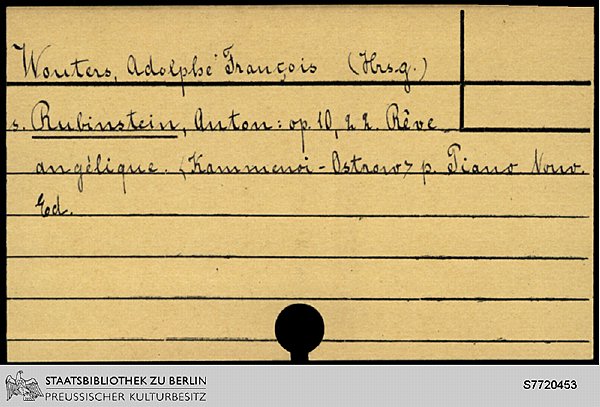 Wouters, Adolphe François (Hrsg.)
s. Rubinstein, Anton: op. 10, 22. Rêve
angélique. <Kammenoi-Ostrow> p. Piano Nouv.
Ed.
STAATSBIBLIOTHEK ZU BERLIN
PREUSSISCHER KULTURBESITZ
S7720453